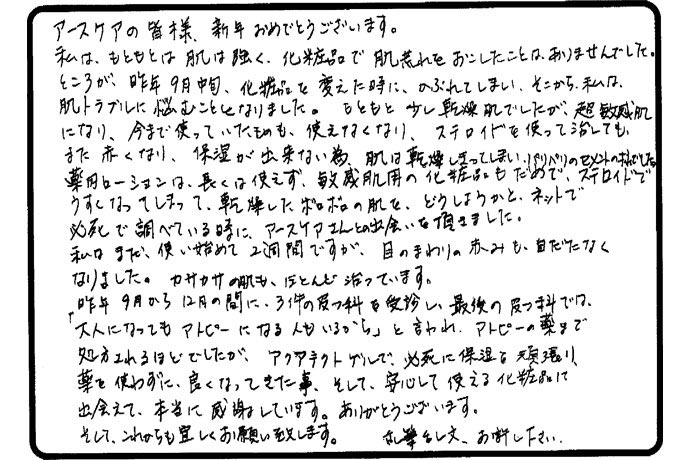 アースケアの皆様、新年おめでとうございます。
私は、もともとは肌は強く、化粧品で肌荒れをおこしたことはありませんでした。
ところが、昨年9月中旬、化粧品を変えた時に、かぶれてしまい、そこから、私は、
肌トラブルに悩むこととなりました。もともと少し乾燥肌でしたが、超敏感肌
になり、今まで使っていたものも、使えなくなり、ステロイドを使って治しても、
また赤くなり、保湿が出来ない為、肌は乾燥しきってしまい、バリバリのセメントの様でした。
薬用ローションは、長くは使えず、敏感肌用の化粧品もだめで、ステロイドで
うすくなってしまって、乾燥したボロボロの肌を、どうしようかと、ネットで
必死で調べている時に、アースケアさんとの出会いを頂きました。
私はまだ、使い始めて2週間ですが、目のまわりの赤みも、目だたなく
なりました。カサカサの肌も、ほとんど治っています。
昨年9月から12月の間に、3件の皮フ科を受診し、最後の皮フ科では、
「大人になってもアトピーになる人もいるから」と言われ、アトピーの薬まで
処方されるほどでしたが、アクアテクトゲルで、必死に保湿を頑張り、
薬を使わずに、良くなってきた事、そして、安心して使える化粧品に
出会えて、本当に感謝しています。ありがとうございます。
そして、これからも宜しくお願い致します。 乱筆乱文、お許し下さい。